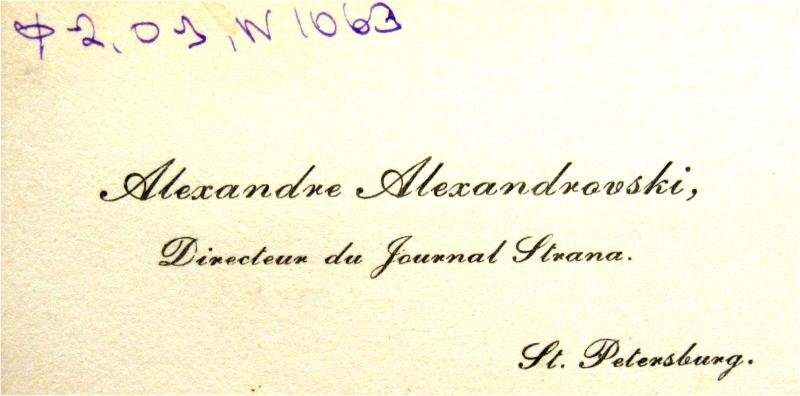 Ф 2, О 3, N 1063
Alexandre Alexandrovski,
Directeur du Journal Strana.
St. Petersburg.